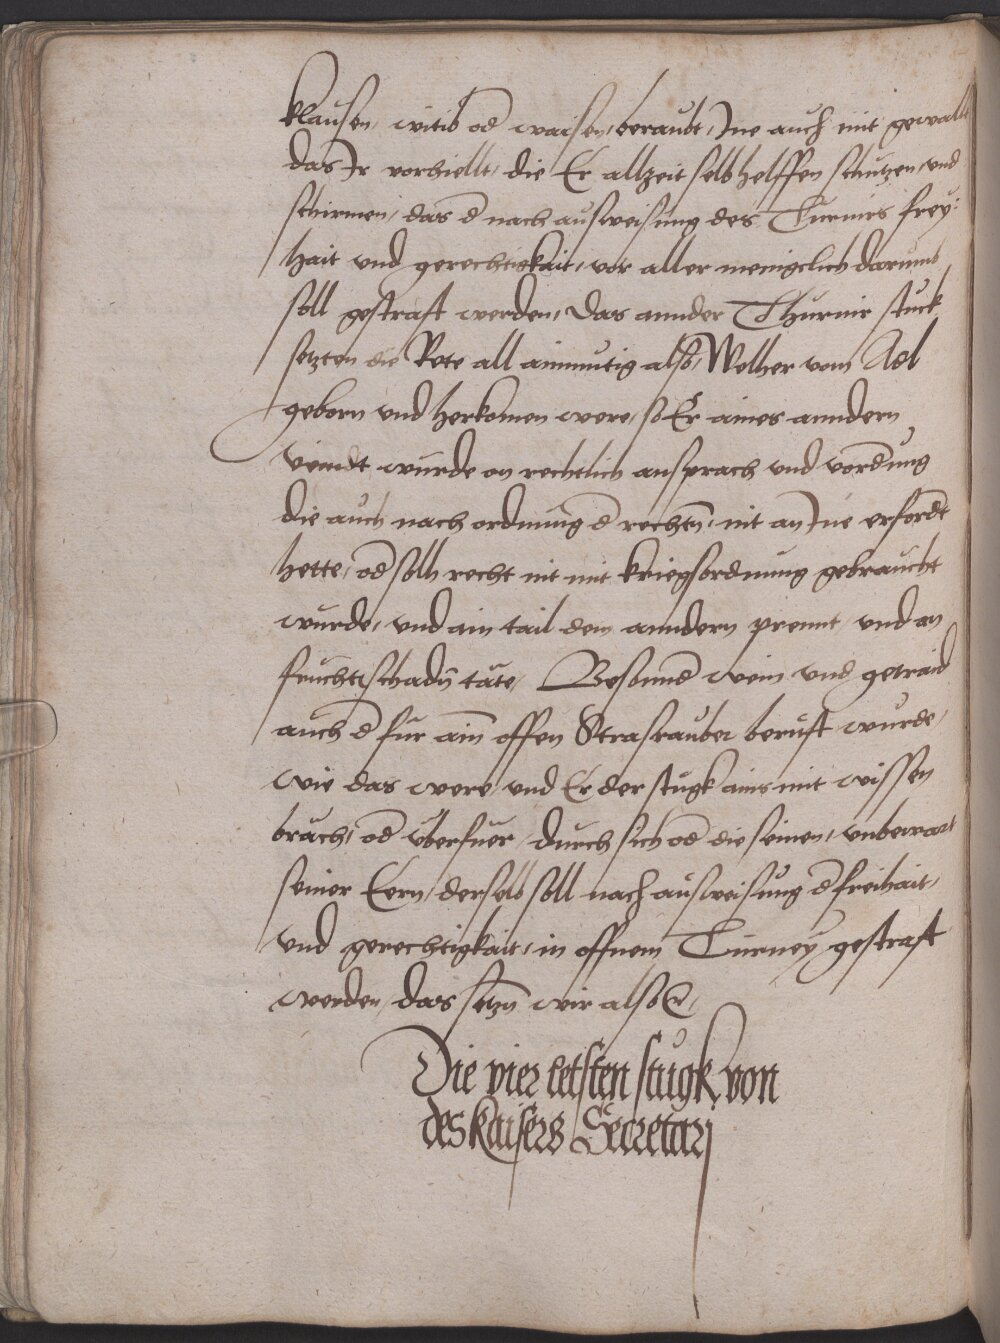 klausen, witib od waisen, beraubt, Ine auch mit gewallt
das Ir vorhiellt, die Er allzeit selb helffen schutzen, und
schirmen, das d nach ausweisung des Turnirs frey:
hait und gerechtikait, vor aller menigclich darumb
soll gestraft werden, Das annder Thurnir stuck
setzten die Rete all ainmutig also, Welher vom Adl
geborn und herkomen were, so Er aines anndern
veindt wurde on rechtlich ansprach und vordrung
die auch nach ordnung d rechtn, nit an Ine erfordt
hette, od solh recht nit mit kriegsordnung gebraucht
wurde, und ain tail dem anndern prennt, und an
frucht schadn täte, Besonnd wein und getraid
auch d fur ain offen Strasrauber beruft wurde,
wie das were, und Er der stugk ains mit wissen
bräch, od überfuer, durch sich od die seinen, unbewart
seiner Eern, derselb soll nach ausweisung d freihait,
und gerechtigkait, in offnem Turney gestraft
werden, das setzn wir also
Die vier letsten stugk von
des kaisers Secretarj